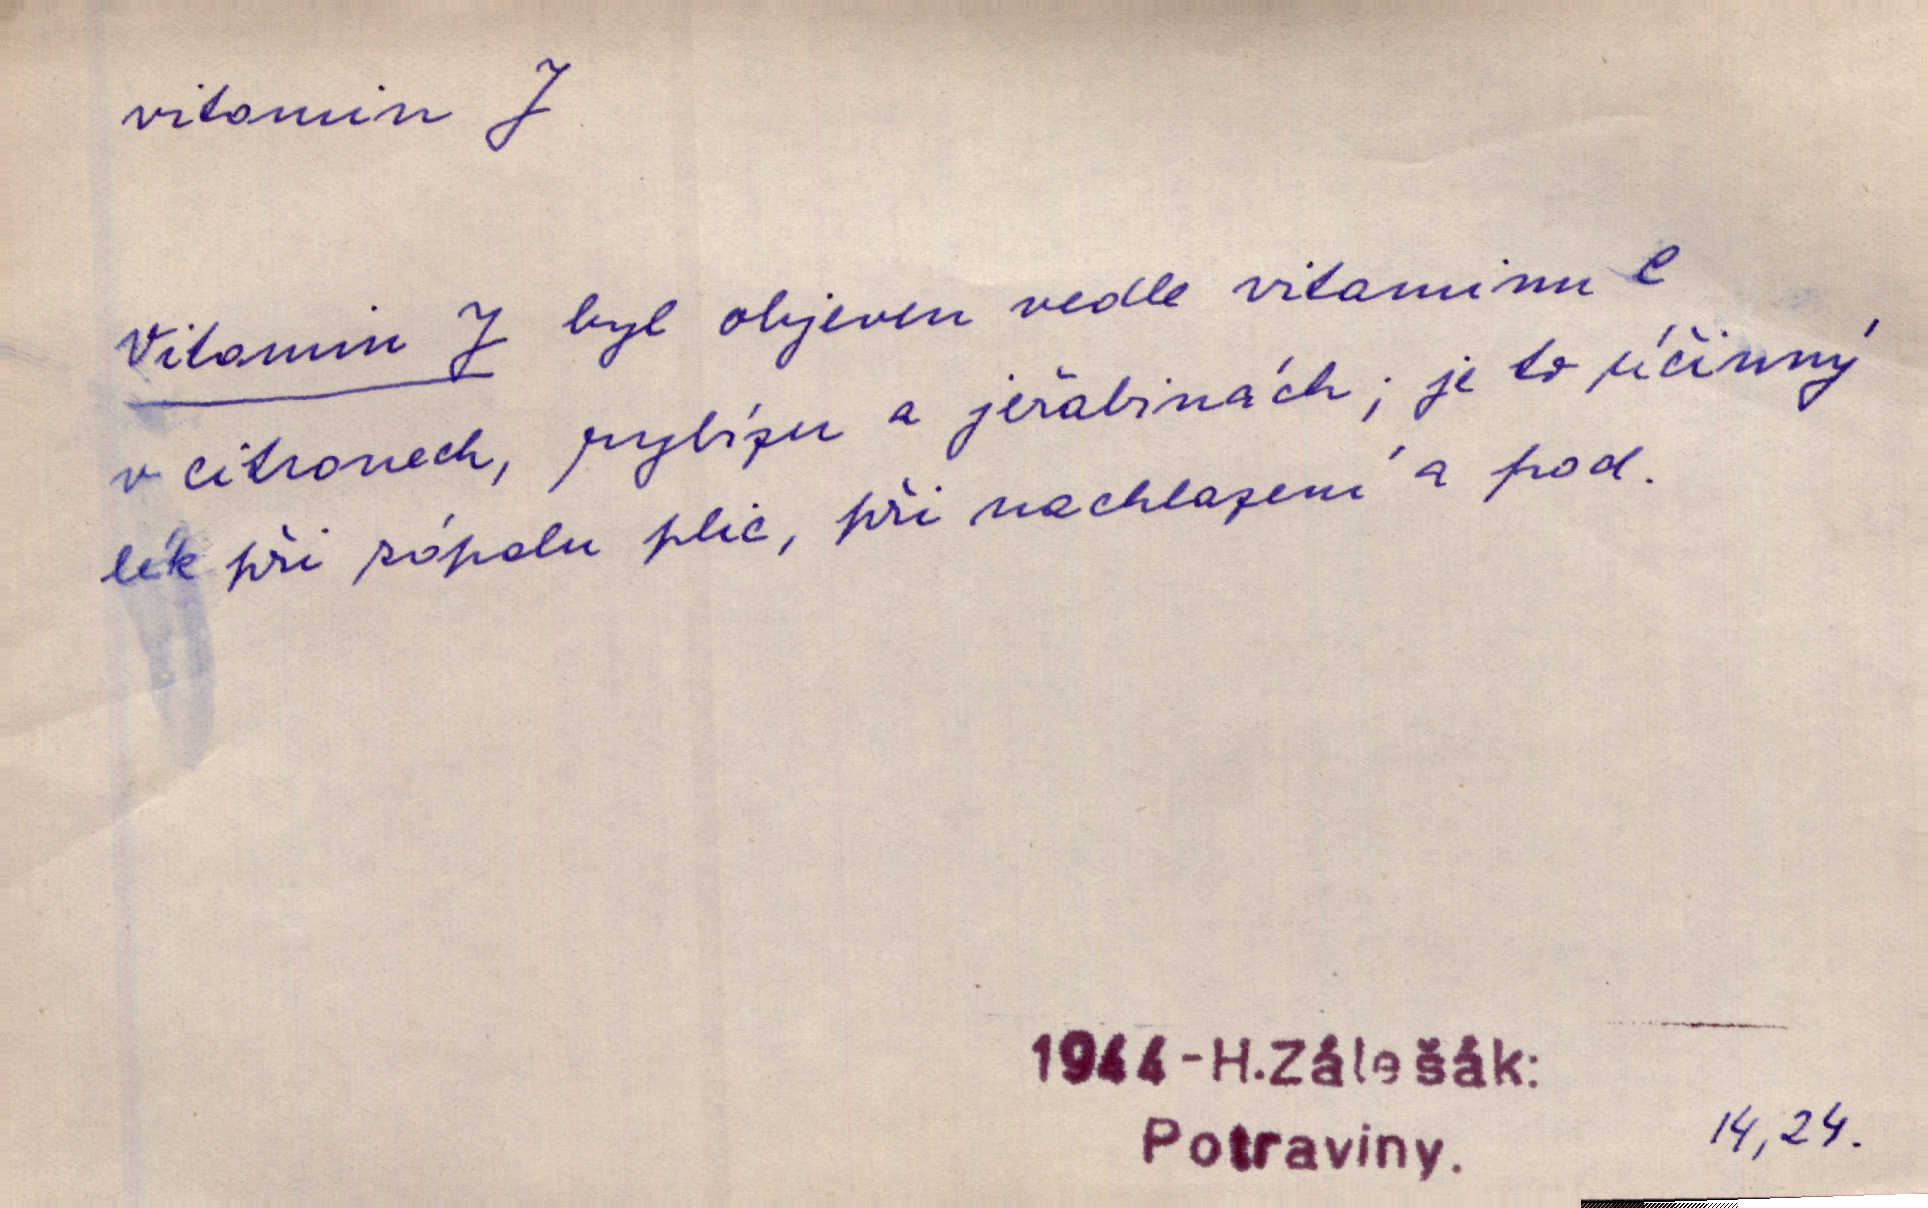 vitamin J
Vitamin J byl objeven vedle vitaminu C
v citronech, rybízu a jeřabinách; je to účinný
lék při zápalu plic, při nachlazení a pod.
1944-H.Zálešák:
Potraviny.
14,24.